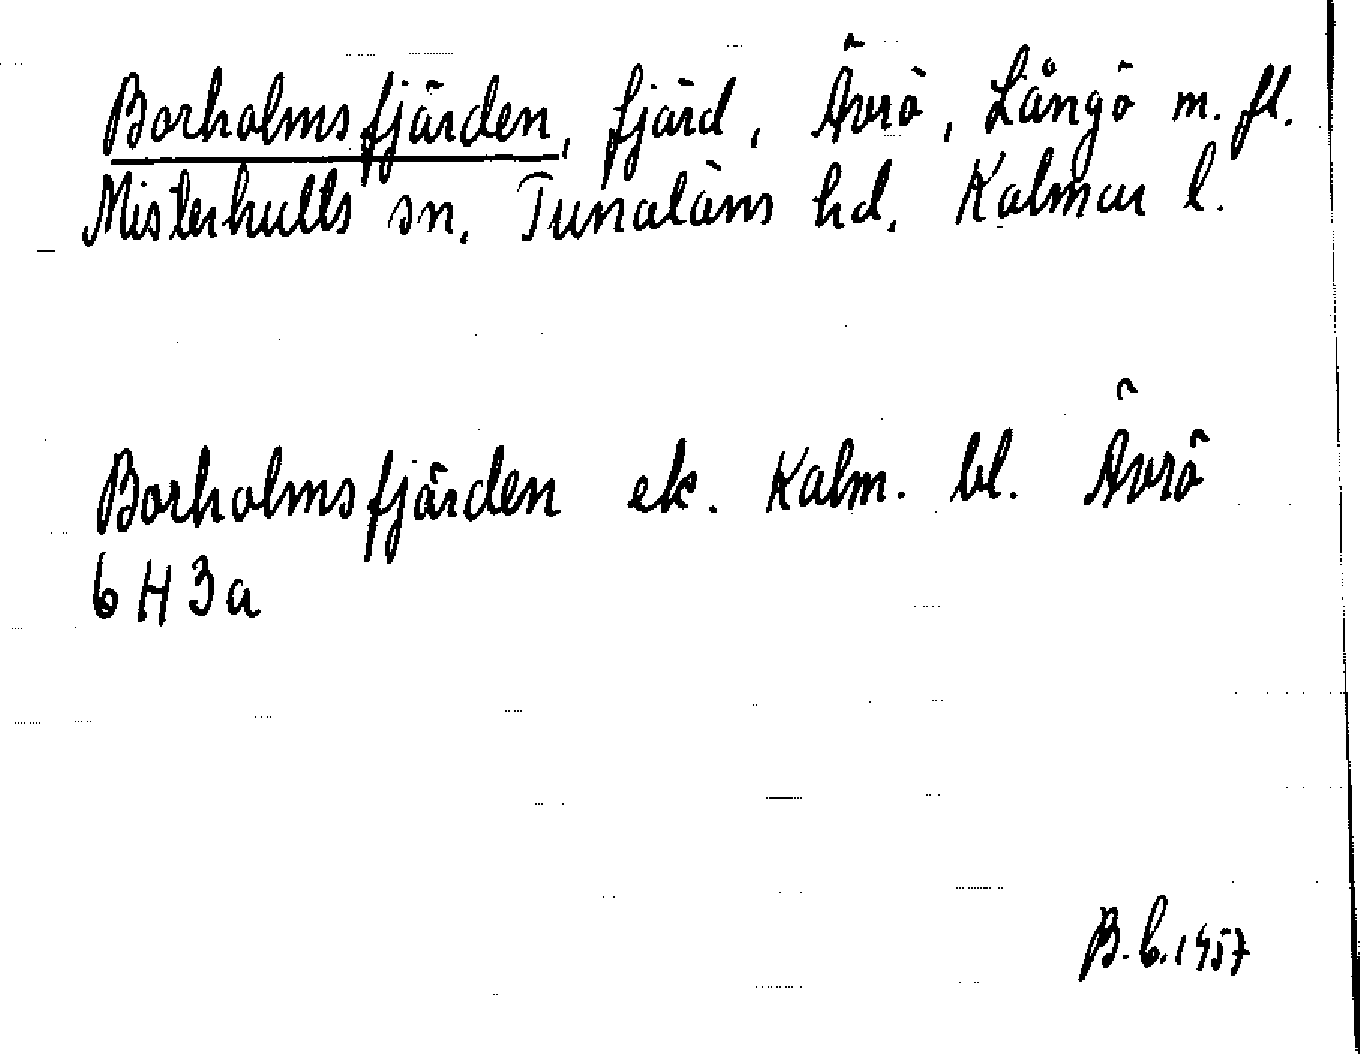 Borholmsfjärden, fjärd, Ävrö, Långö m. fl.
Misterhults sn. Tunaläns hd. Kalmar l.
Borholmsfjärden ek. Kalm. bl. Ävrö
6 H 3 a
B.C. 1957